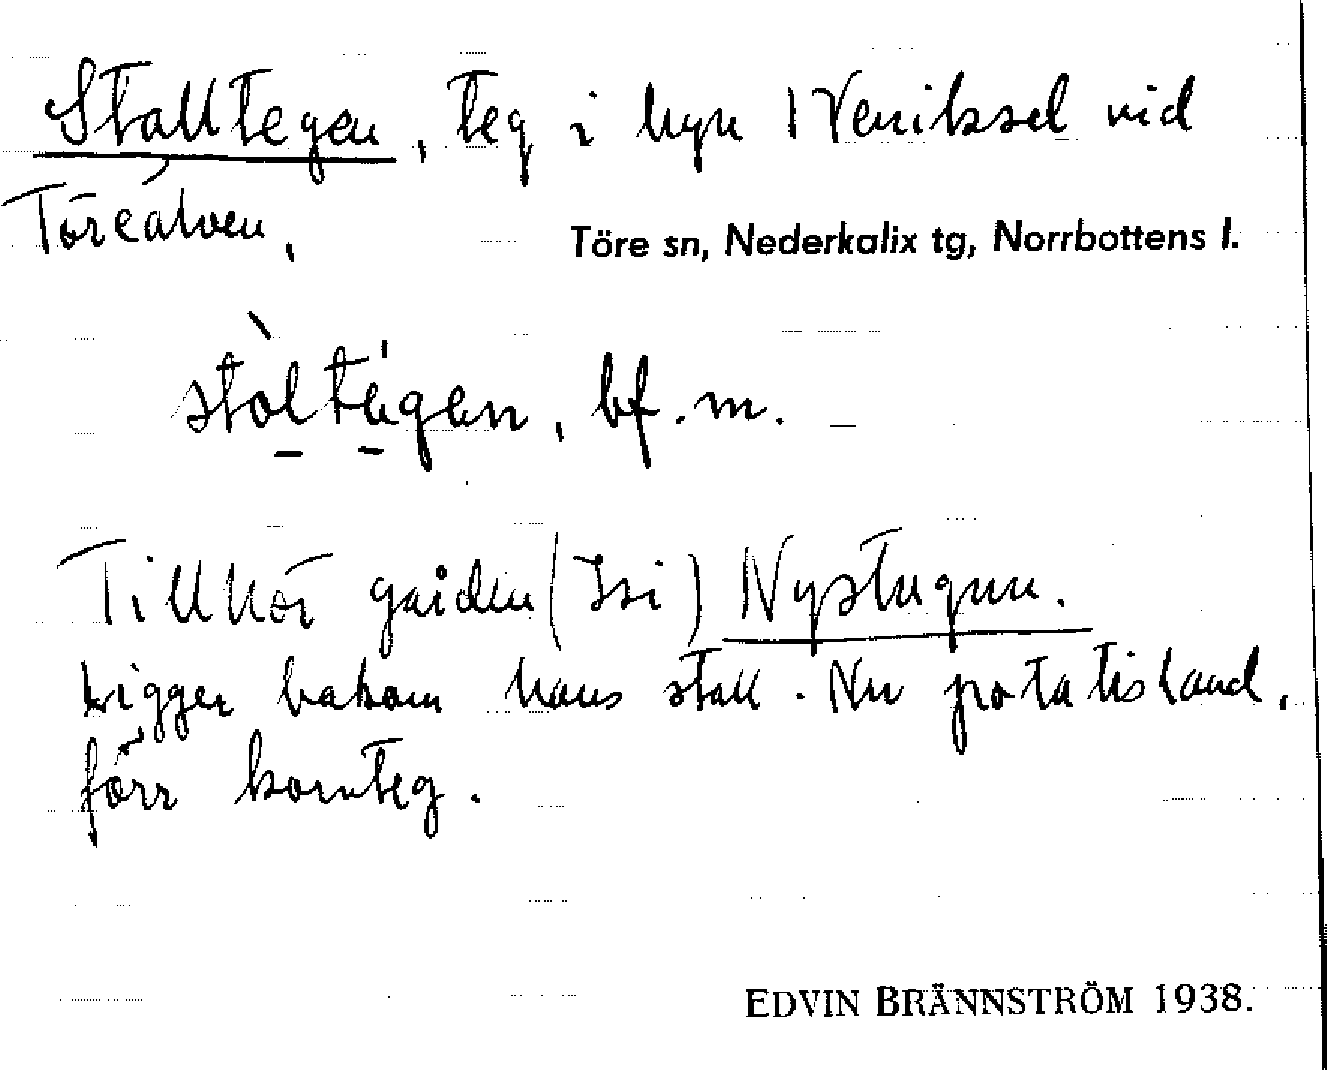 Stalltegen, teg i byn Veniksel vid
Töreälven,
Töre sn, Nederkalix tg, Norrbottens l.
stòltégen, bf. m.
Tillhör gården (Isi) Nystugun.
Ligger bakom hans stall. Nu potatisland,
förr kornteg.
EDVIN BRÄNNSTRÖM 1938.